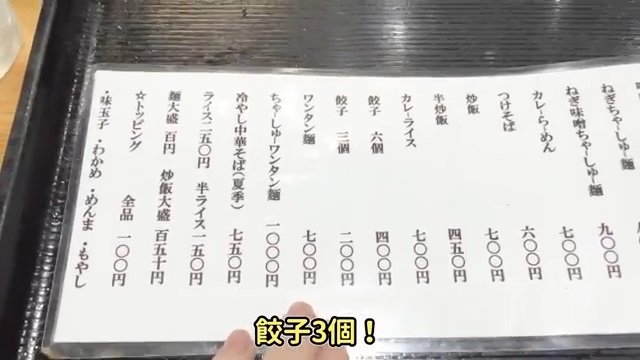 ねぎちゃーしゅー麺 九〇〇円
ねぎ味噌ちゃーしゅー麺 七〇〇円
カレーらーめん 六〇〇円
つけそば 七〇〇円
炒飯 七〇〇円
半炒飯 四五〇円
カレーライス 七〇〇円
餃子 六個 四〇〇円
餃子 三個 二〇〇円
ワンタン麺 七〇〇円
ちゃーしゅーワンタン麺 一〇〇〇円
冷やし中華そば(夏季) 七五〇円
ライス二五〇円 半ライス一五〇円
麺大盛 百円 炒飯大盛 百五十円
☆トッピング 全品 一〇〇円
・味玉子 ・わかめ ・めんま ・もやし
餃子3個！